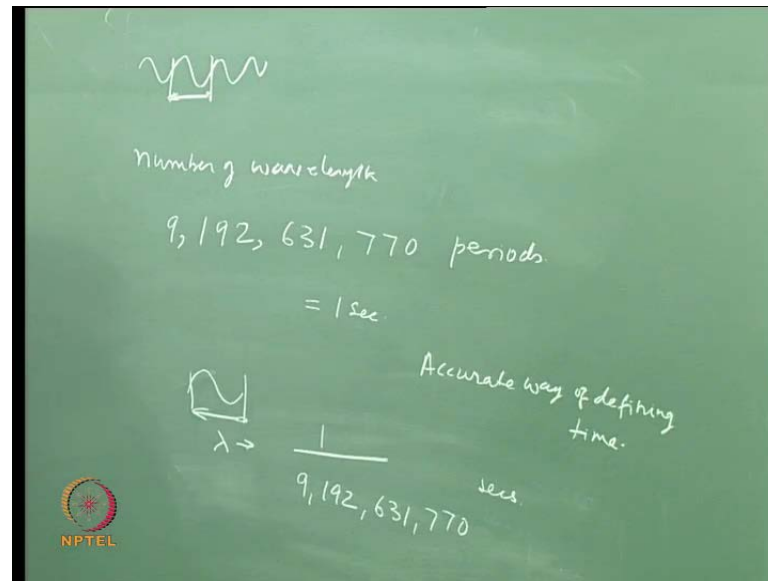 Number of wavelength
9, 192, 631, 770 periods.
= 1 sec.
Accurate way of defining
time.
λ → 1
9, 192, 631, 770 secs.
NPTEL